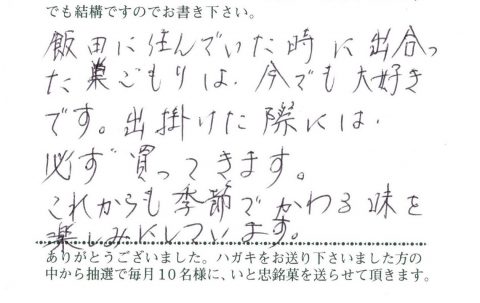 でも結構ですのでお書き下さい。
飯田に住んでいた時に出合っ
た巣ごもりは、今でも大好き
です。出掛けた際には、
必ず買ってきます。
これからも季節でかわる味を
楽しみにしています。
ありがとうございました。ハガキをお送り下さいました方の
中から抽選で毎月10名様に、いと忠銘菓を送らせて頂きます。